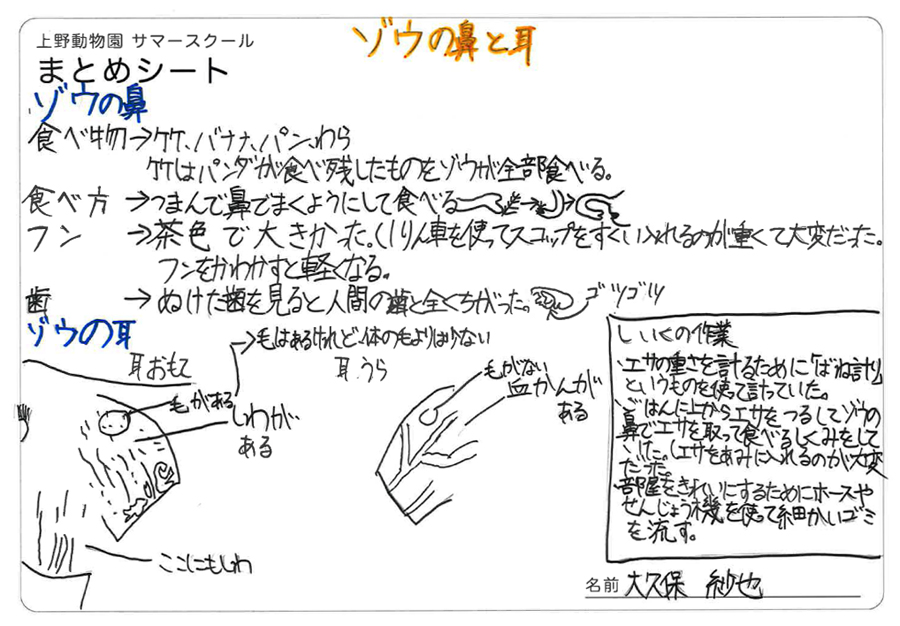 上野動物園 サマースクール
まとめシート
ゾウの鼻と耳
ゾウの鼻
食べ物→竹、バナナ、パン、わら
竹はパンダが食べ残したものをゾウが全部食べる。
食べ方→つまんで鼻でまくようにして食べる
フン→茶色で大きかった。(1りん車を使ってスコップをすくい入れるのが重くて大変だった。
フンをかわかすと軽くなる。
歯→ぬけた歯を見ると人間の歯と全くちがった。
ゴツゴツ
ゾウの耳
→毛はあるけれど、体の毛よりは少ない
耳おもて
毛がある
しわが
ある
ここにもしわ
耳うら
毛がない
血かんが
ある
しいくの作業
・エサの重さを計るために「ばね計り」
というものを使て計っていた。
・ごはんに上からエサをつるしてゾウの
鼻でエサを取って食べるしくみをして
いた。(エサをあみに入れるのが大変
だった。
・部屋をきれいにするためにホースや
せんじょう機を使って細かいゴミ
を流す。
名前 大久保 紗也